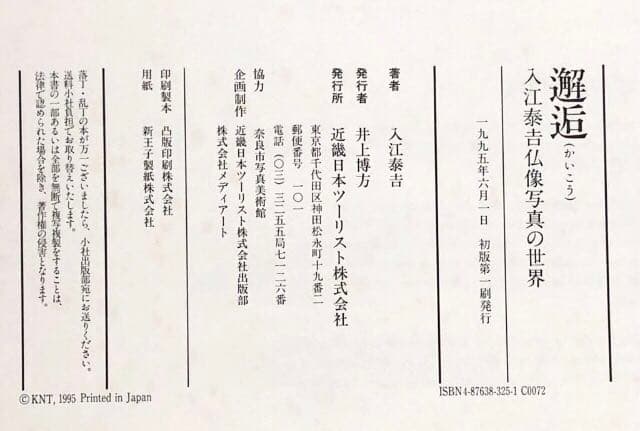 邂逅(かいこう)
入江泰𠮷仏像写真の世界
一九九五年六月一日 初版第一刷発行
著者 入江泰𠮷
発行者 井上博方
発行所 近畿日本ツーリスト株式会社
東京都千代田区神田松永町十九番二
郵便番号 一〇一
電話 (〇三) 三二五五局七一二六番
協力 奈良市写真美術館
企画制作 近畿日本ツーリスト株式会社出版部
株式会社メディアート
印刷製本 凸版印刷株式会社
用紙 新王子製紙株式会社
落丁・乱丁の本が万一ございましたら、小社出版部宛にお送りください。
送料小社負担でお取り替えいたします。
本書の一部あるいは全部を無断で複写複製をすることは、
法律で認められた場合を除き、著作権の侵害となります。
ISBN4-87638-325-1 C0072
©KNT, 1995 Printed in Japan